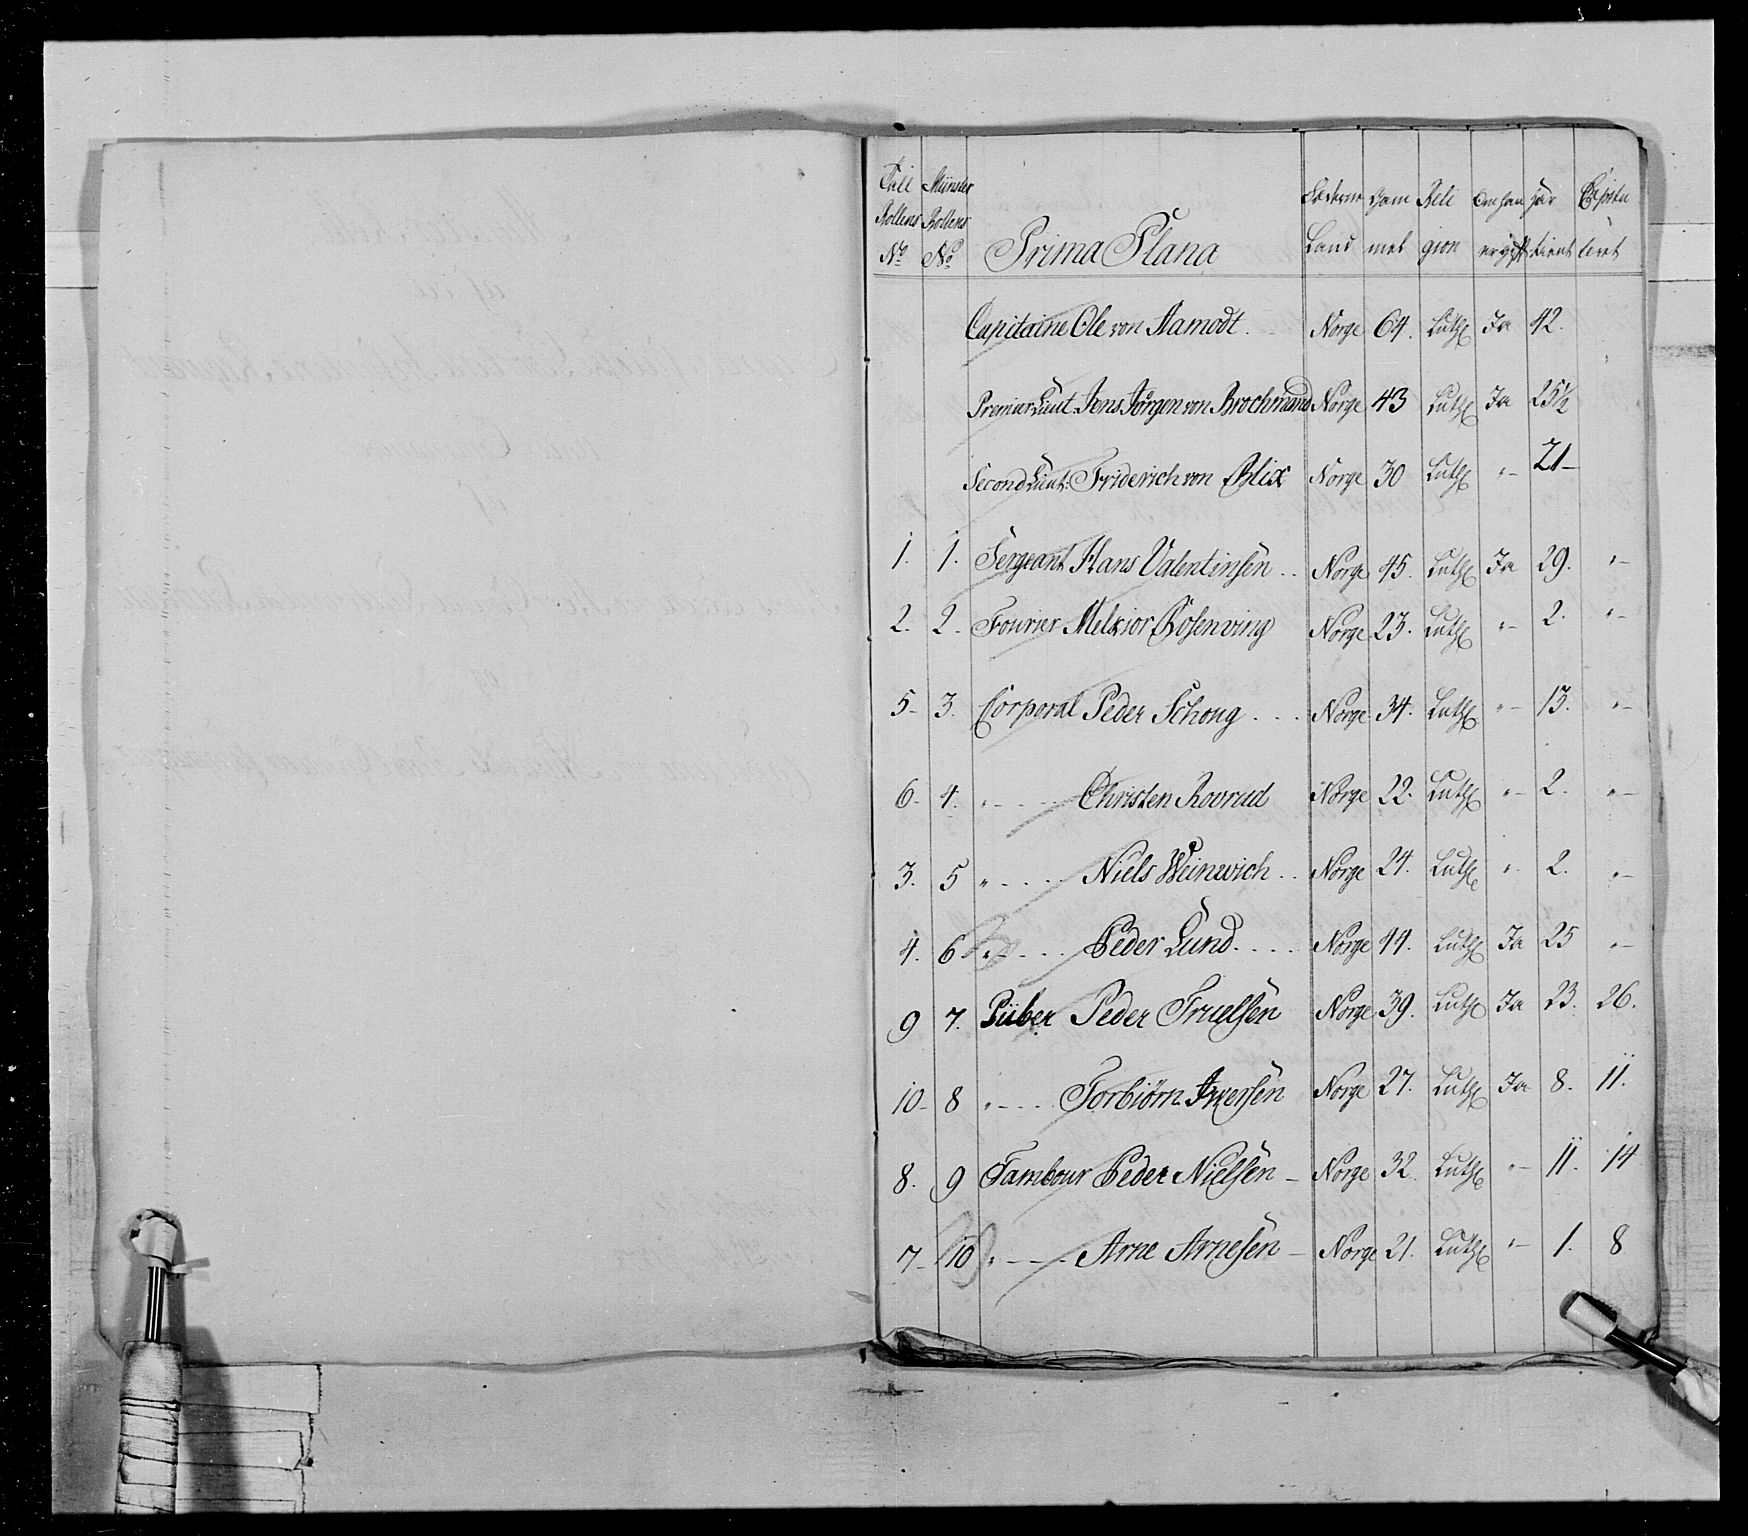 Rullens No Mynster Rollens No Prima Plana Fæderne Land Gam̄el Religion Om han er gift Har tient Capituleret
Capitaine Ole von Aamodt. Norge 64. Luth Ja 42.
Premier Lieut. Jens Jørgen von Brochmand Norge 43 Luth Ja 25½
Second Lieut: Friderich von Blix Norge 30 Luth " - 21 -
1. 1. Sergeant Hans Valentinsen .. Norge 45. Luth Ja 29. " -
2. 2. Fourier Melkior Rosenving Norge 23. Luth " - 2. " -
5. 3. Corporal Peder Schong ... Norge 34. Luth " - 13. " -
6. 4. " - - - Christen Rovrud Norge 22. Luth " - 2. " -
3. 5 " .... Niels Weinwich .. Norge 24. Luth " - 2. " -
4. 6 " .... Peder Lund .... Norge 44. Luth Ja 25 " -
9 7. Piiber Peder Truelsen Norge 39. Luth Ja 23. 26.
10. 8 " - - - Torbiørn Iwersen Norge 27. Luth Ja 8. 11.
8. 9 Tambour Peder Nielsen - Norge 32. Luth " - 11. 14
7. 10 " - - - Arne Arnesen - Norge 21. Luth " - 1. 8